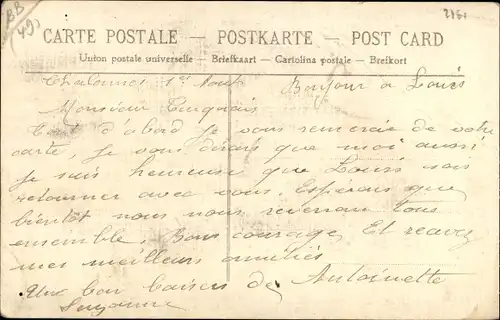 BB
(49)
2151
CARTE POSTALE — POSTKARTE — POST CARD
Union postale universelle — Briefkaart — Cartolina postale — Brefkort
Chalonnes 1er Aout Bonjour a Louis
Monsieur
Tout d'abord je vous remercie de votre
carte, je vous dirais que moi aussi
je suis heureuse que Louis sois
retourner avec vous. Esperons que
bientôt nous nous reverrons tous
ensemble. Bons courage. Et recevez
mes meilleurs amitiés
Un bon baiser de Antoinette
Suzanne